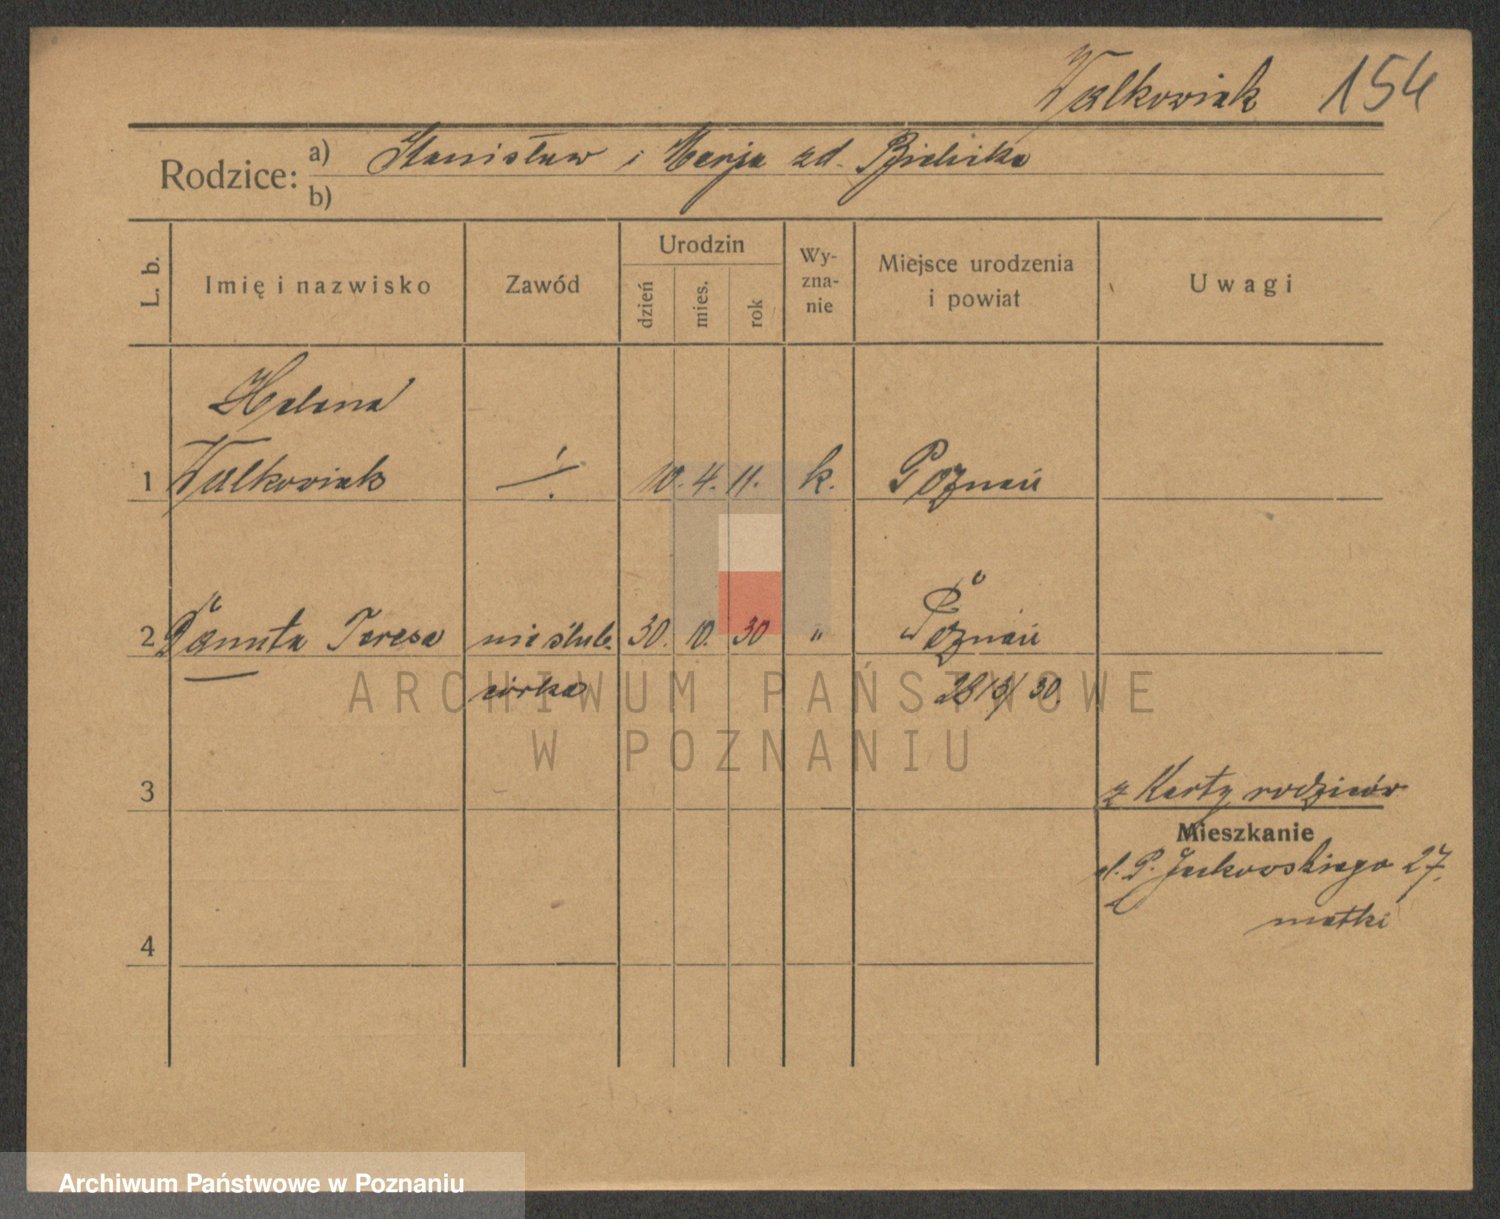 Walkowiak 154
Rodzice: a) Stanisław i Marja zd. Bielicka
b)
L. b. Imię i nazwisko Zawód Urodzin dzień mies. rok Wy-zna-nie Miejsce urodzenia i powiat Uwagi
Helena
1 Walkowiak ./. 10. 4. 11. k. Poznań
2 Danuta Teresa nieślub. 30. 10. 30 " Poznań
córka 2813/30.
3 z Karty rodziców
Mieszkanie
ul. P. Jackowskiego 27.
matki
4
ARCHIWUM PAŃSTWOWE
W POZNANIU
Archiwum Państwowe w Poznaniu